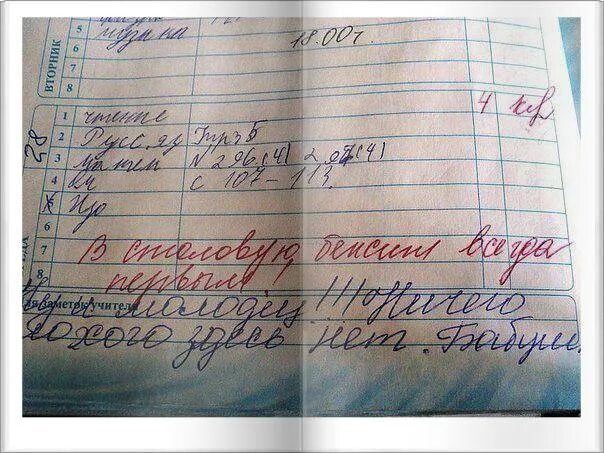 5 музыка
18.00 г.
6
7
8
ВТОРНИК
28
1 чтение
4 кл
2 Русс. яз Упр 5
3 матем N 296(4) 297(4)
4 с 107 – 113.
5 Изо
6
7 В столовую бежит всегда
8 первым
для заметок учителя
Ну и молодец!!! Ничего
плохого здесь нет. Бабушк